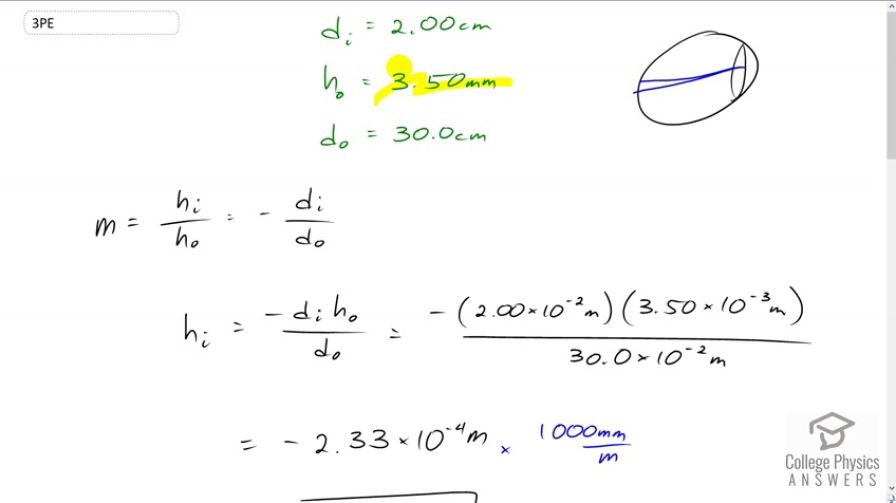 3PE
dᵢ = 2.00cm
hₒ = 3.50mm
dₒ = 30.0cm
m = hᵢ/hₒ = - dᵢ/dₒ
hᵢ = -dᵢ hₒ/dₒ = -(2.00×10⁻²m)(3.50×10⁻³m)/30.0×10⁻²m
= -2.33×10⁻⁴m × 1000mm/m
College Physics
ANSWERS